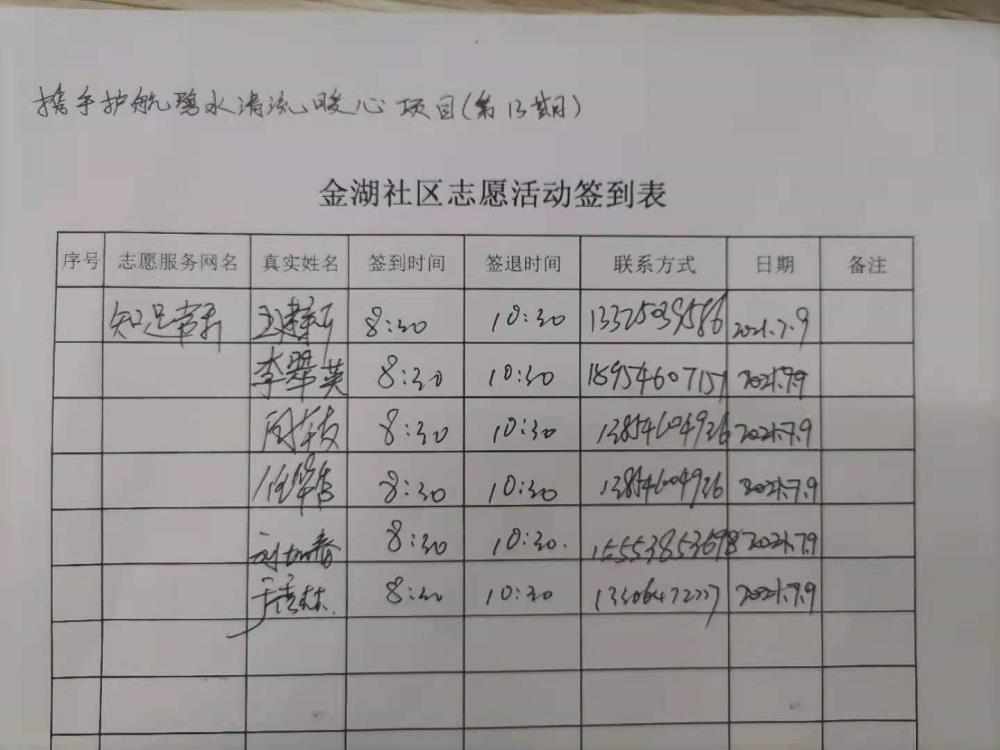 携手护航碧水清流暖心项目(第13期)
金湖社区志愿活动签到表
序号 志愿服务网名 真实姓名 签到时间 签退时间 联系方式 日期 备注
知足常乐 8:30 10:30 13325039586 2021.7.9
李翠英 8:30 10:30 15954607151 2021.7.9
8:30 10:30 13854604926 2021.7.9
8:30 10:30 13854604926 2021.7.9
8:30 10:30. 15553853698 2021.7.9
8:30 10:30 2021.7.9